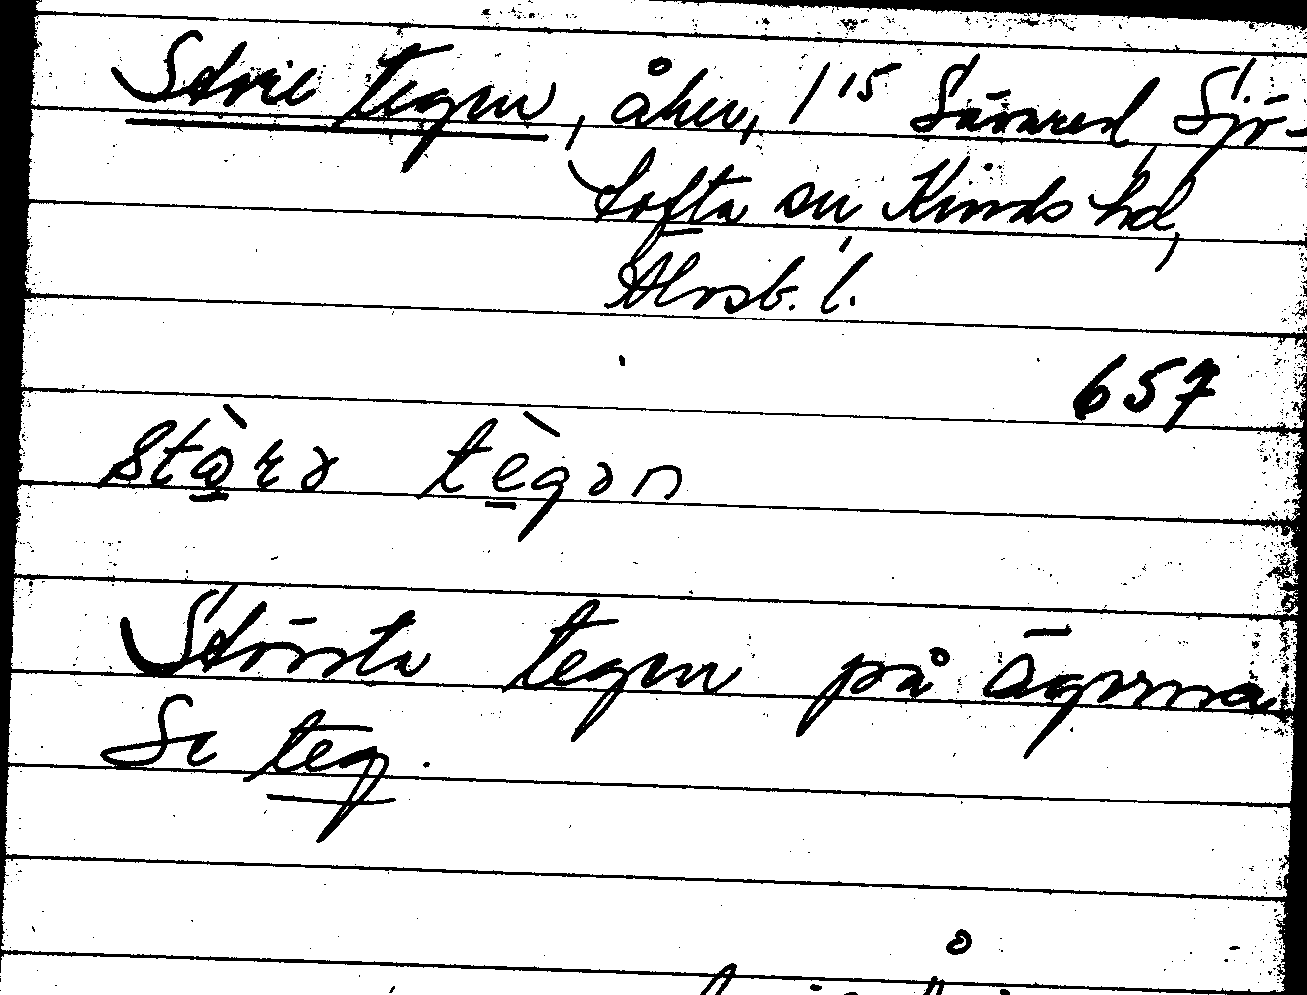 Store tegen, åker, 1/15 Sävared, Sjö-
tofta sn Kinds hd,
Älvsb. l.
657
stò̱ra tè̱gən
Största tegen på ägorna
Se teg.